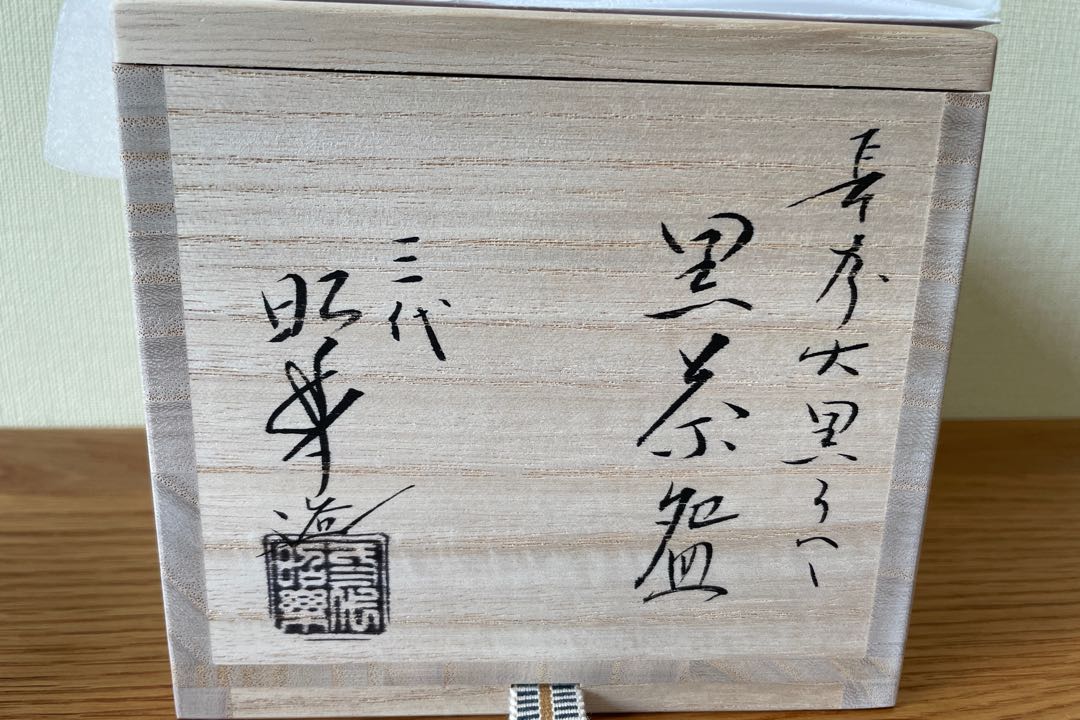 大黒うつし
黒茶盌
三代
昭楽造